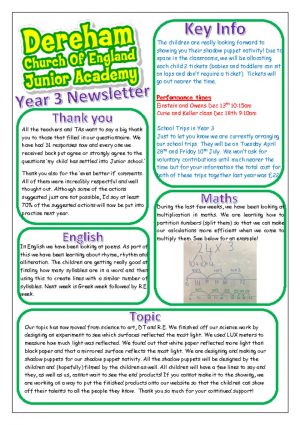 Dereham
Church Of England
Junior Academy
Year 3 Newsletter
Thank you
All the teachers and TAs want to say a big thank
you to those that filled in our questionnaire. We
have had 31 responses now and every one we
received back put agree or strongly agree to the
question 'my child has settled into Junior school.'
Thank you also for the 'even better if' comments.
All of them were incredibly respectful and well
thought out. Although some of the actions
suggested just are not possible, I'd say at least
70% of the suggested actions will now be put into
practice next year.
English
In English we have been looking at poems. As part of
this we have been learning about rhyme, rhythm and
alliteration. The children are getting really good at
finding how many syllables are in a word and then
using this to create lines with a similar number of
syllables. Next week is Greek week followed by R.E
week.
Key Info
The children are really looking forward to
showing you their shadow puppet activity! Due to
space in the classrooms, we will be allocating
each child 2 tickets (babies and toddlers can sit
on laps and don't require a ticket). Tickets will
go out nearer the time.
Performance times
Einstein and Owens Dec 13th 10:15am
Curie and Keller class Dec 18th 9:10am
School Trips in Year 3
Just to let you know we are currently arranging
our school trips. They will be on Tuesday April
28th and Friday 10th July. We won't ask for
voluntary contributions until much nearer the
time but for your information the total cost for
both of these trips together last year was £22
Maths
During the last few weeks, we have been looking at
multiplication in maths. We are learning how to
partition numbers (split them) so that we can make
our calculations more efficient when we come to
multiply them. See below for an example!
Topic
Our topic has now moved from science to art, D.T and R.E. We finished off our science work by
designing an experiment to see which surfaces reflected the most light. We used LUX meters to
measure how much light was reflected. We found out that white paper reflected more light than
black paper and that a mirrored surface reflects the most light. We are designing and making our
shadow puppets for our shadow puppet activity. All the shadow puppets will be designed by the
children and (hopefully) filmed by the children as well. All children will have a few lines to say and
they, as well as us, cannot wait to see the end products! If you cannot make it to the showing, we
are working on a way to put the finished products onto our website so that the children can show
off their talents to all the people they know. Thank you so much for your continued support!